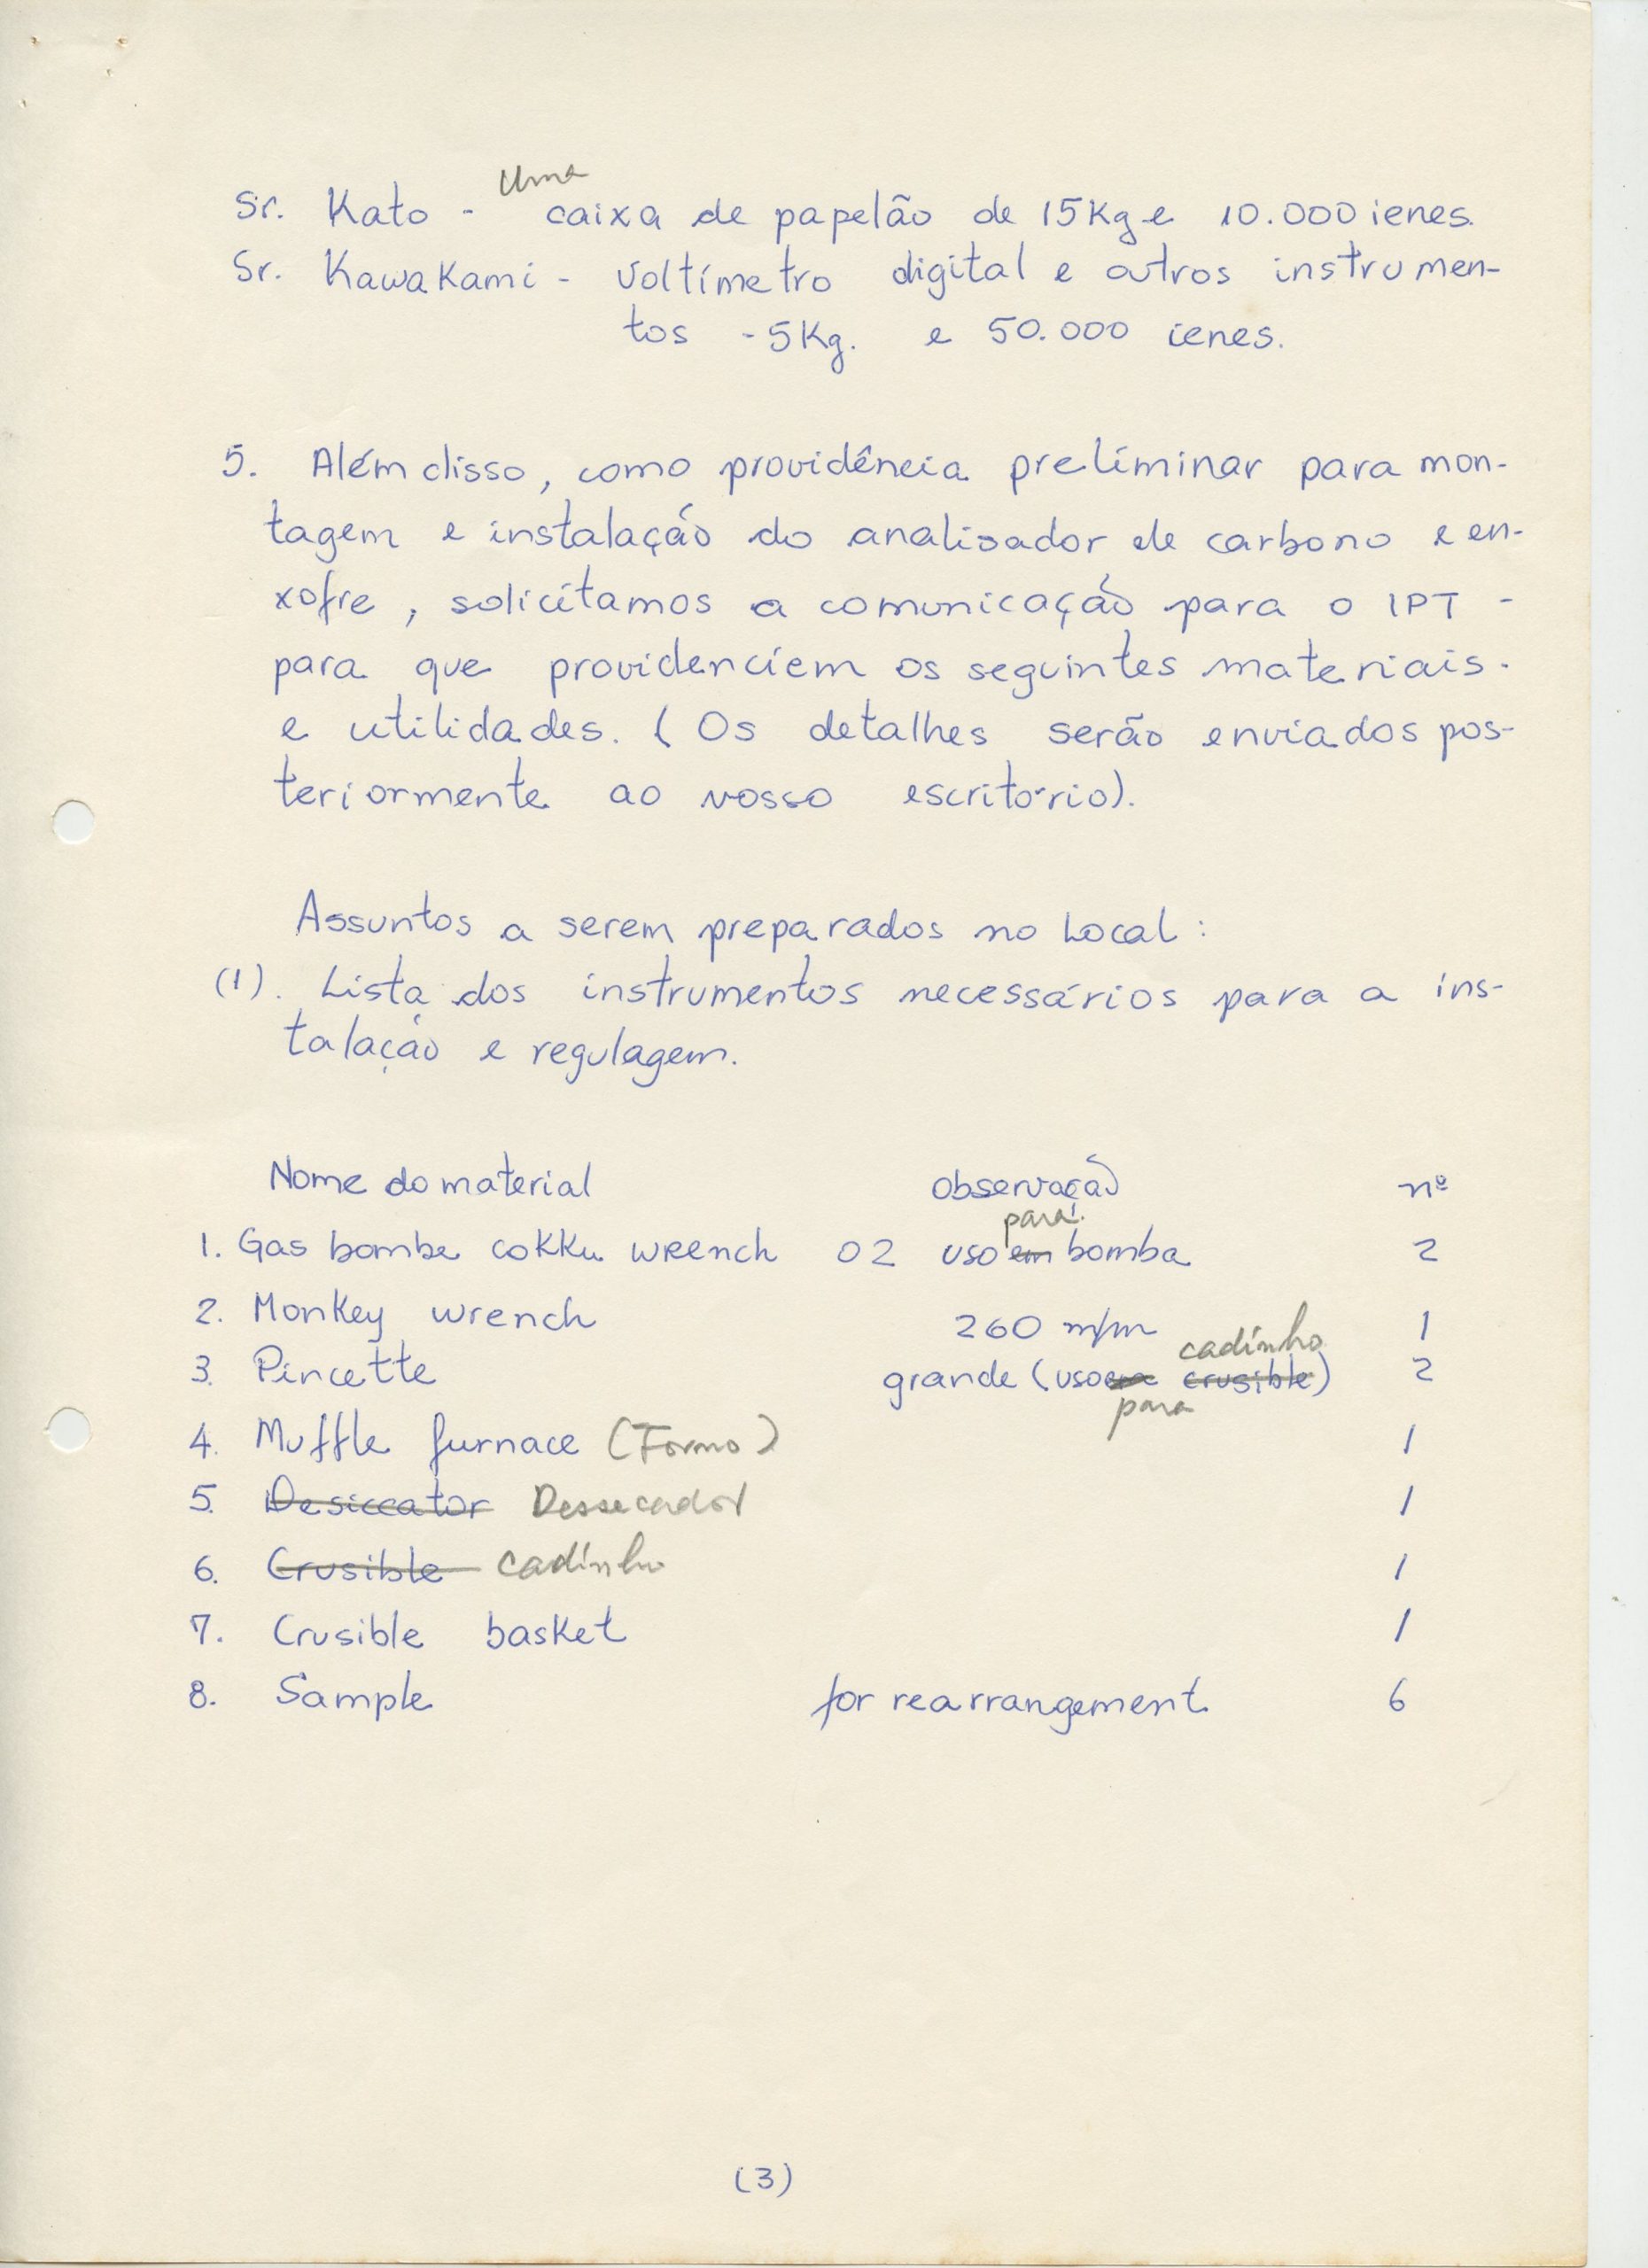 Sr. Kato - Uma caixa de papelão de 15Kg e 10.000 ienes.
Sr. Kawakami - Voltímetro digital e outros instrumen-
tos - 5Kg. e 50.000 ienes.
5. Além disso, como providência preliminar para mon-
tagem e instalação do analisador de carbono e en-
xofre, solicitamos a comunicação para o IPT -
para que providenciem os seguintes materiais.
e utilidades. (Os detalhes serão enviados pos-
teriormente ao vosso escritório).
Assuntos a serem preparados no Local:
(1). Lista dos instrumentos necessários para a ins-
talação e regulagem.
Nome do material observação nº
para
1. Gas bombe cokku wrench O2 uso em bomba 2
2. Monkey wrench 260 m/m 1
cadinho
3. Pincette grande (uso em crusible) 2
para
4. Muffle furnace (Forno) 1
5. Desiccator Dessecador 1
6. Crusible cadinho 1
7. Crusible basket 1
8. Sample for rearrangement 6
(3)